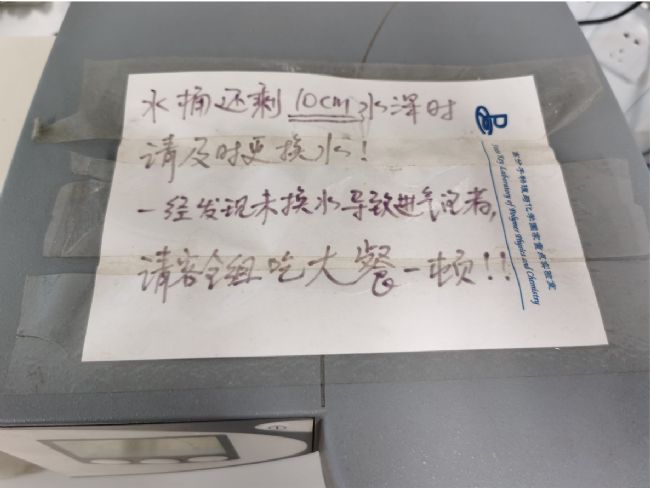 水桶还剩 10cm 水深时
请及时更换水!
一经发现未换水导致进气泡者,
请客全组吃大餐一顿!!
高分子物理与化学国家重点实验室
State Key Laboratory of Polymer Physics and Chemistry